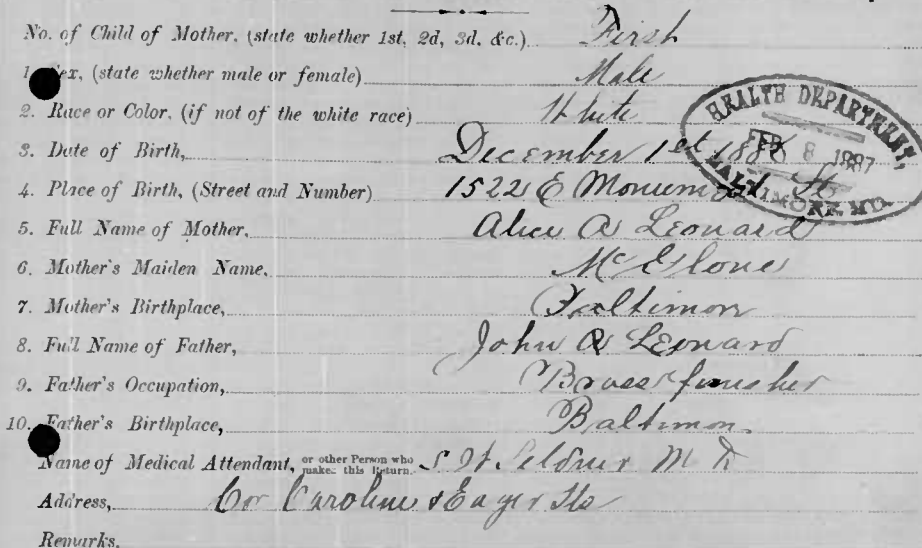 No. of Child of Mother, (state whether 1st, 2d, 3d, &c.) First
1. Sex, (state whether male or female) Male
2. Race or Color, (if not of the white race) White
3. Date of Birth, December 1st 1886
4. Place of Birth, (Street and Number) 1522 E Monument St
5. Full Name of Mother, Alice A Leonard
6. Mother's Maiden Name,
7. Mother's Birthplace, Baltimore
8. Full Name of Father, John A Leonard
9. Father's Occupation, Brass finisher
10. Father's Birthplace, Baltimore
Name of Medical Attendant, or other Person who makes this Return. S H Seldner M D
Address, Cor Caroline & Eager Sts
Remarks,
HEALTH DEPARTMENT,
FEB 8 1887
BALTIMORE, MD.